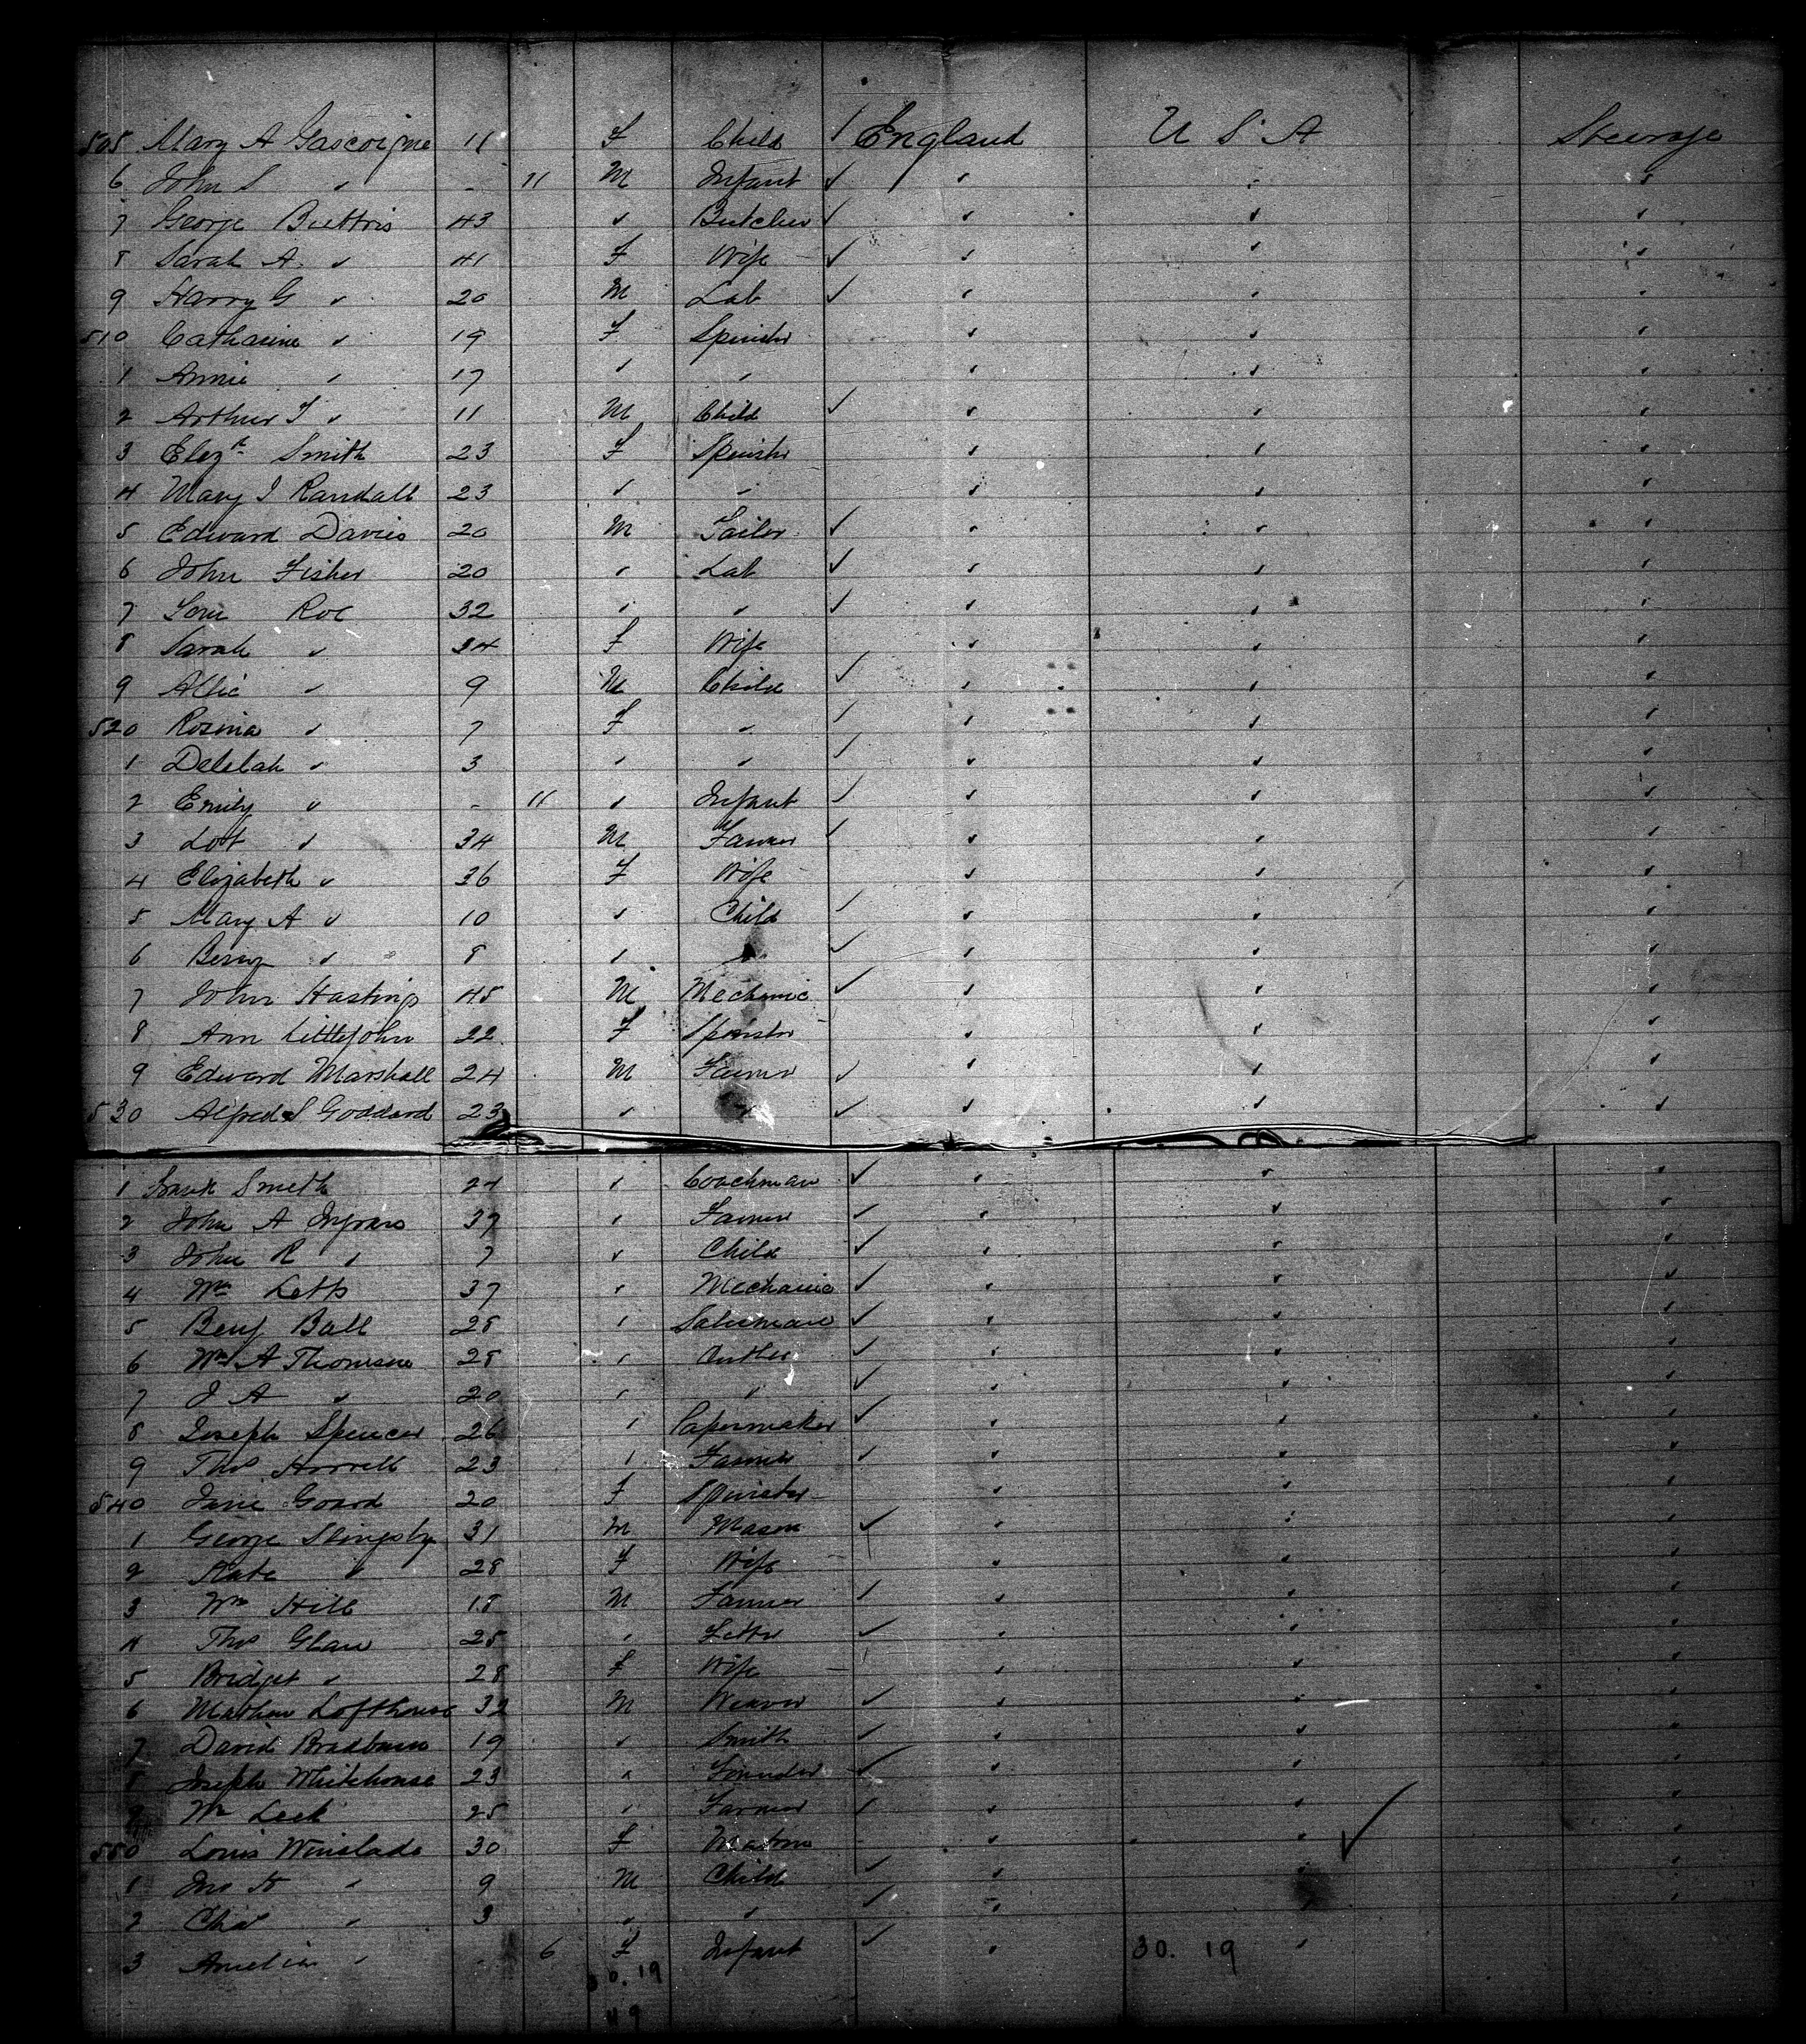 505 Mary A Gascoigne 11 F Child / England U S A Steerage
6 John S " - 11 M Infant ✓ " " "
7 George Buttris 43 " Butcher ✓ " " "
8 Sarah A " 41 F Wife - ✓ " " "
9 Harry G " 20 M Lab ✓ " " "
510 Catharine " 19 F Spinster " " "
1 Annie " 17 " " " " "
2 Arthur T " 11 M Child ✓ " " "
3 Elizth Smith 23 F Spinster " " "
4 Mary J Randall 23 " " " " "
5 Edward Davies 20 M Tailor ✓ " " "
6 John Fisher 20 " Lab ✓ " " "
7 Tom Roe 32 " " ✓ " " "
8 Sarah " 34 F Wife " " "
9 Allic " 9 M Child ✓ " " "
520 Rosina " 7 F " ✓ " " "
1 Delilah " 3 " " ✓ " " "
2 Emily " - 11 " Infant ✓ " " "
3 Lot " 34 M Farmer ✓ " " "
4 Elizabeth " 36 F Wife " " "
5 Mary A " 10 " Child ✓ " " "
6 " 8 " " ✓ " " "
7 John Hastings 45 M Mechanic ✓ " " "
8 Ann Littlejohn 22 F Spinster " " "
9 Edward Marshall 24 M Farmer ✓ " " "
530 Alfred S Goddard 23 " " ✓ " " "
1 Frank Smith 24 " Coachman ✓ " " "
2 John A Ingram 37 " Farmer ✓ " " "
3 John R " 7 " Child ✓ " " "
4 Wm Letts 37 " Mechanic ✓ " " "
5 Benj Ball 28 " Salesman ✓ " " "
6 Wm A Thomson 28 " Cutler ✓ " " "
7 J A " 20 " " ✓ " " "
8 Joseph Spencer 26 " Papermaker ✓ " " "
9 Thos Horrell 23 " Farmer ✓ " " "
540 Jane Goard 20 F Spinster " " "
1 George Slingsby 31 M Mason ✓ " " "
2 Kate " 28 F Wife " " "
3 Wm Hill 18 M Farmer ✓ " " "
4 Thos 25 " Fitter ✓ " " "
5 Bridget " 28 F Wife - " " "
6 Mathew Lofthouse 32 M Weaver ✓ " " "
7 David Bradburn 19 " Smith ✓ " " "
8 Joseph Whitehouse 23 " Founder ✓ " " "
9 Wm Leek 25 " Farmer ✓ " " "
550 Louis Winslade 30 F Matron " " ✓ "
1 Jno H " 9 M Child ✓ " " "
2 Chas " 3 " " ✓ " "
3 Amelia " - 6 F Infant ✓ " 30. 19 "
30. 19
49